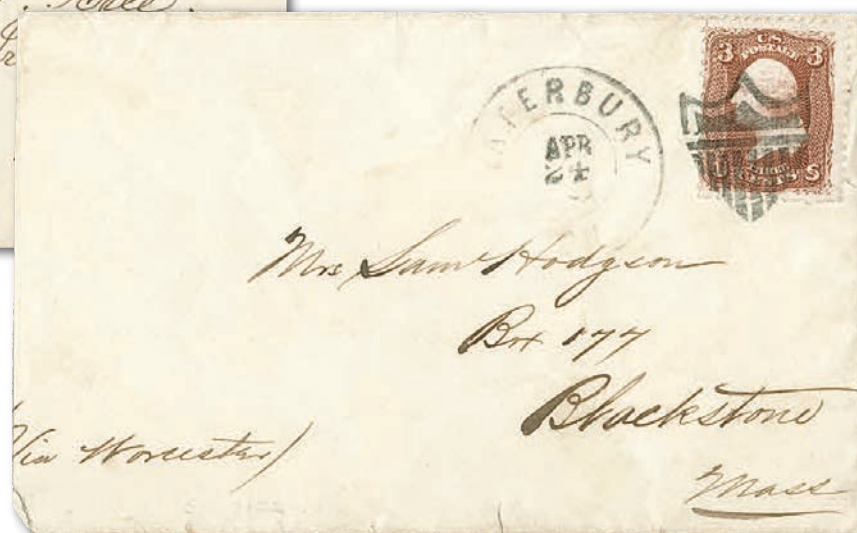 WATERBURY
APR
24
3 U.S. 3
POSTAGE
U S
CENTS
Mrs Saml Hodgson
Box 177
Blackstone
Mass
Via Worcester)